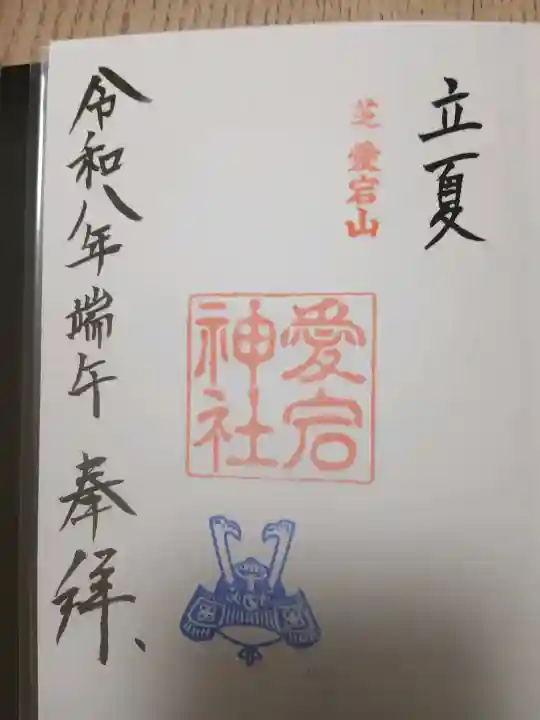 立夏
芝愛宕山
愛宕
神社
令和八年端午 奉拝、